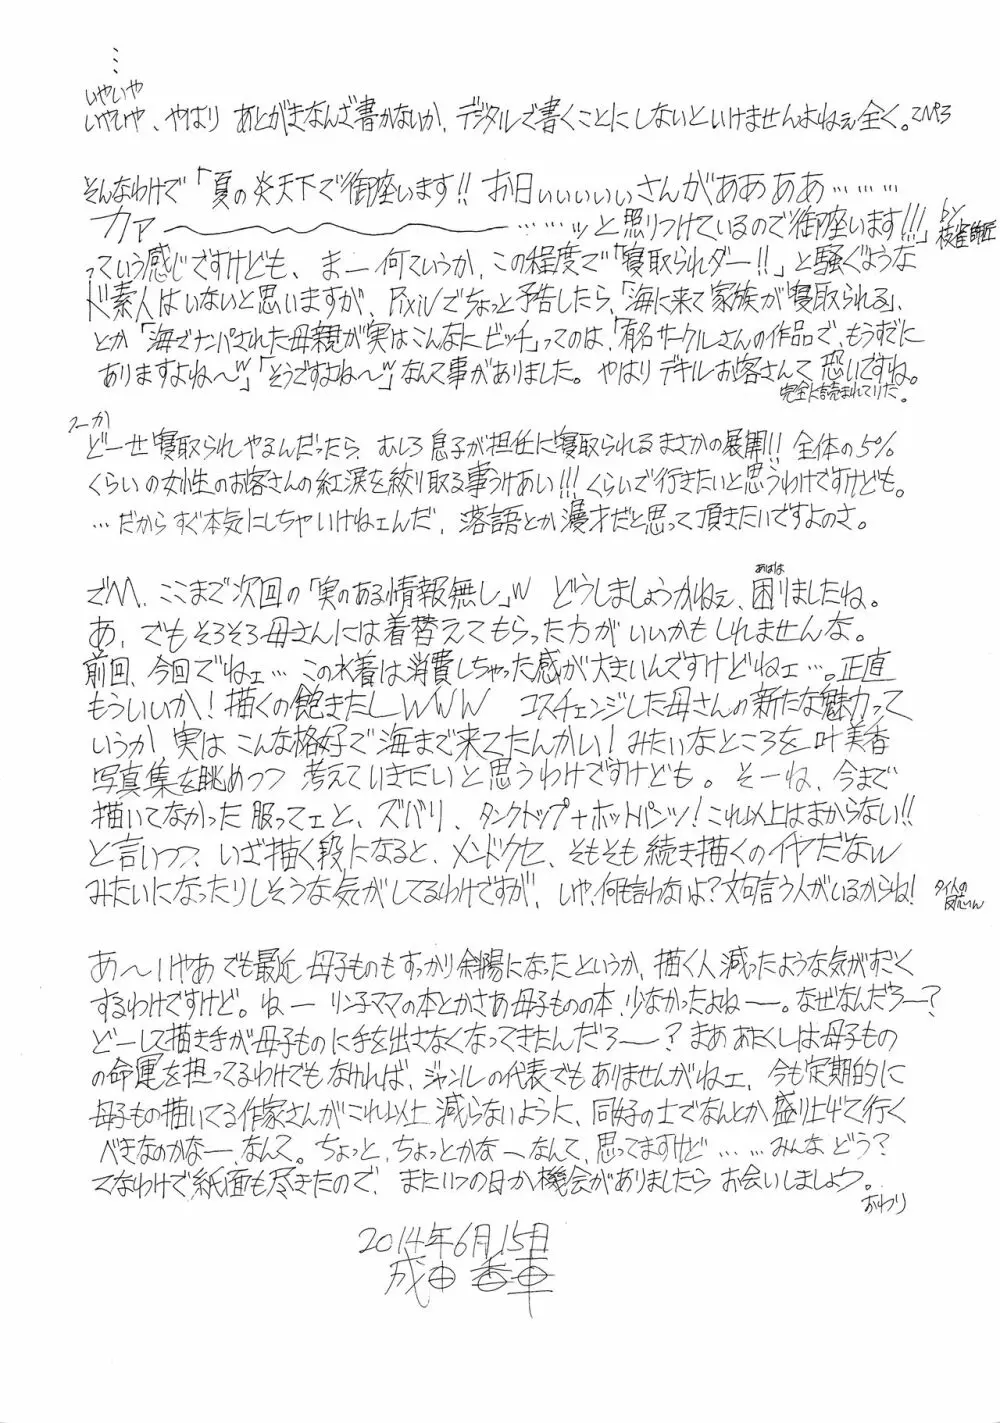 …
いやいや
いやいや、やはり あとがきなんざ書かないか、デジタルで書くことにしないといけませんよねぇ全く。
そんなわけで「夏の炎天下で御座います!! お日ぃぃぃぃぃさんがああああ………
カァ〜〜〜〜〜……ッと照りつけているので御座います!!!」by枝雀師匠
っていう感じですけども、まー何ていうか、この程度で「寝取られダー!!」と騒ぐような
ド素人はいないと思いますが、Pixivでちょっと予告したら、「海に来て家族が寝取られる」、
とか「海でナンパされた母親が実はこんなにビッチ」ってのは、「有名サークルさんの作品で、もうすでに
ありますよね〜w」「そうですよね〜w」なんて事がありました。やはりデキルお客さんて恐いですね。
完全に読まれてりだ。
つーか
どーせ寝取られやるんだったら、むしろ息子が担任に寝取られるまさかの展開!! 全体の5%
くらいの女性のお客さんの紅涙を絞り取る事うけあい!!! くらいで行きたいと思うわけですけども。
…だからすぐ本気にしちゃいけねェんだ、落語とか漫才だと思って頂きたいですよのさ。
で、ここまで次回の「実のある情報無し」w どうしましょうかねぇ、困りましたね。
あはは
あ、でもそろそろ母さんには着替えてもらった方がいいかもしれませんな。
前回、今回でねェ…この水着は消費しちゃった感が大きいんですけどねェ…。正直
もういいか!描くの飽きたしwww コスチェンジした母さんの新たな魅力って
いうか 実は こんな格好で海まで来てたんかい!みたいなところを 叶美香
写真集を眺めつつ 考えていきたいと思うわけですけども。そーね、今まで
描いてなかった服ってェと、ズバリ、タンクトップ+ホットパンツ!これ以上はまからない!!
と言いつつ、いざ描く段になると、メンドクセ、そもそも続き描くのイヤだなw
みたいになったりしそうな気がしてるわけですが、いや、何も言わないよ?文句言う人がいるからね!
あ〜いやあでも最近 母子ものもすっかり斜陽になったというか、描く人減ったような気がすごく
するわけですけど。ねー リン子ママの本とかさあ母子ものの本、少なかったよねー。なぜなんだろー?
どーして描き手が母子ものに手を出さなくなってきたんだろー?まああたくしは母子もの
の命運を担ってるわけでもなければ、ジャンルの代表でもありませんがねェ、今も定期的に
母子もの描いてる作家さんがこれ以上減らないように、同好の士でなんとか盛り上げて行く
べきなのかなー、なんて。ちょっと、ちょっとかなーなんて、思ってますけど……みんなどう?
てなわけで紙面も尽きたので、またいつの日か機会がありましたらお会いしましょう。
おわり
2014年6月15日
成田香車